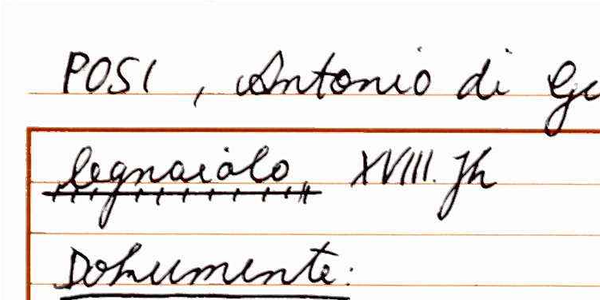 POSI, Antonio di
legnaiolo, XVIII. Jh
Dokumente: